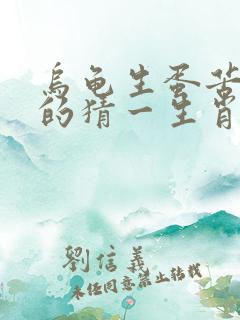 乌龟生蛋苦
的猜一生肖
劉信義
未经同意禁止转载